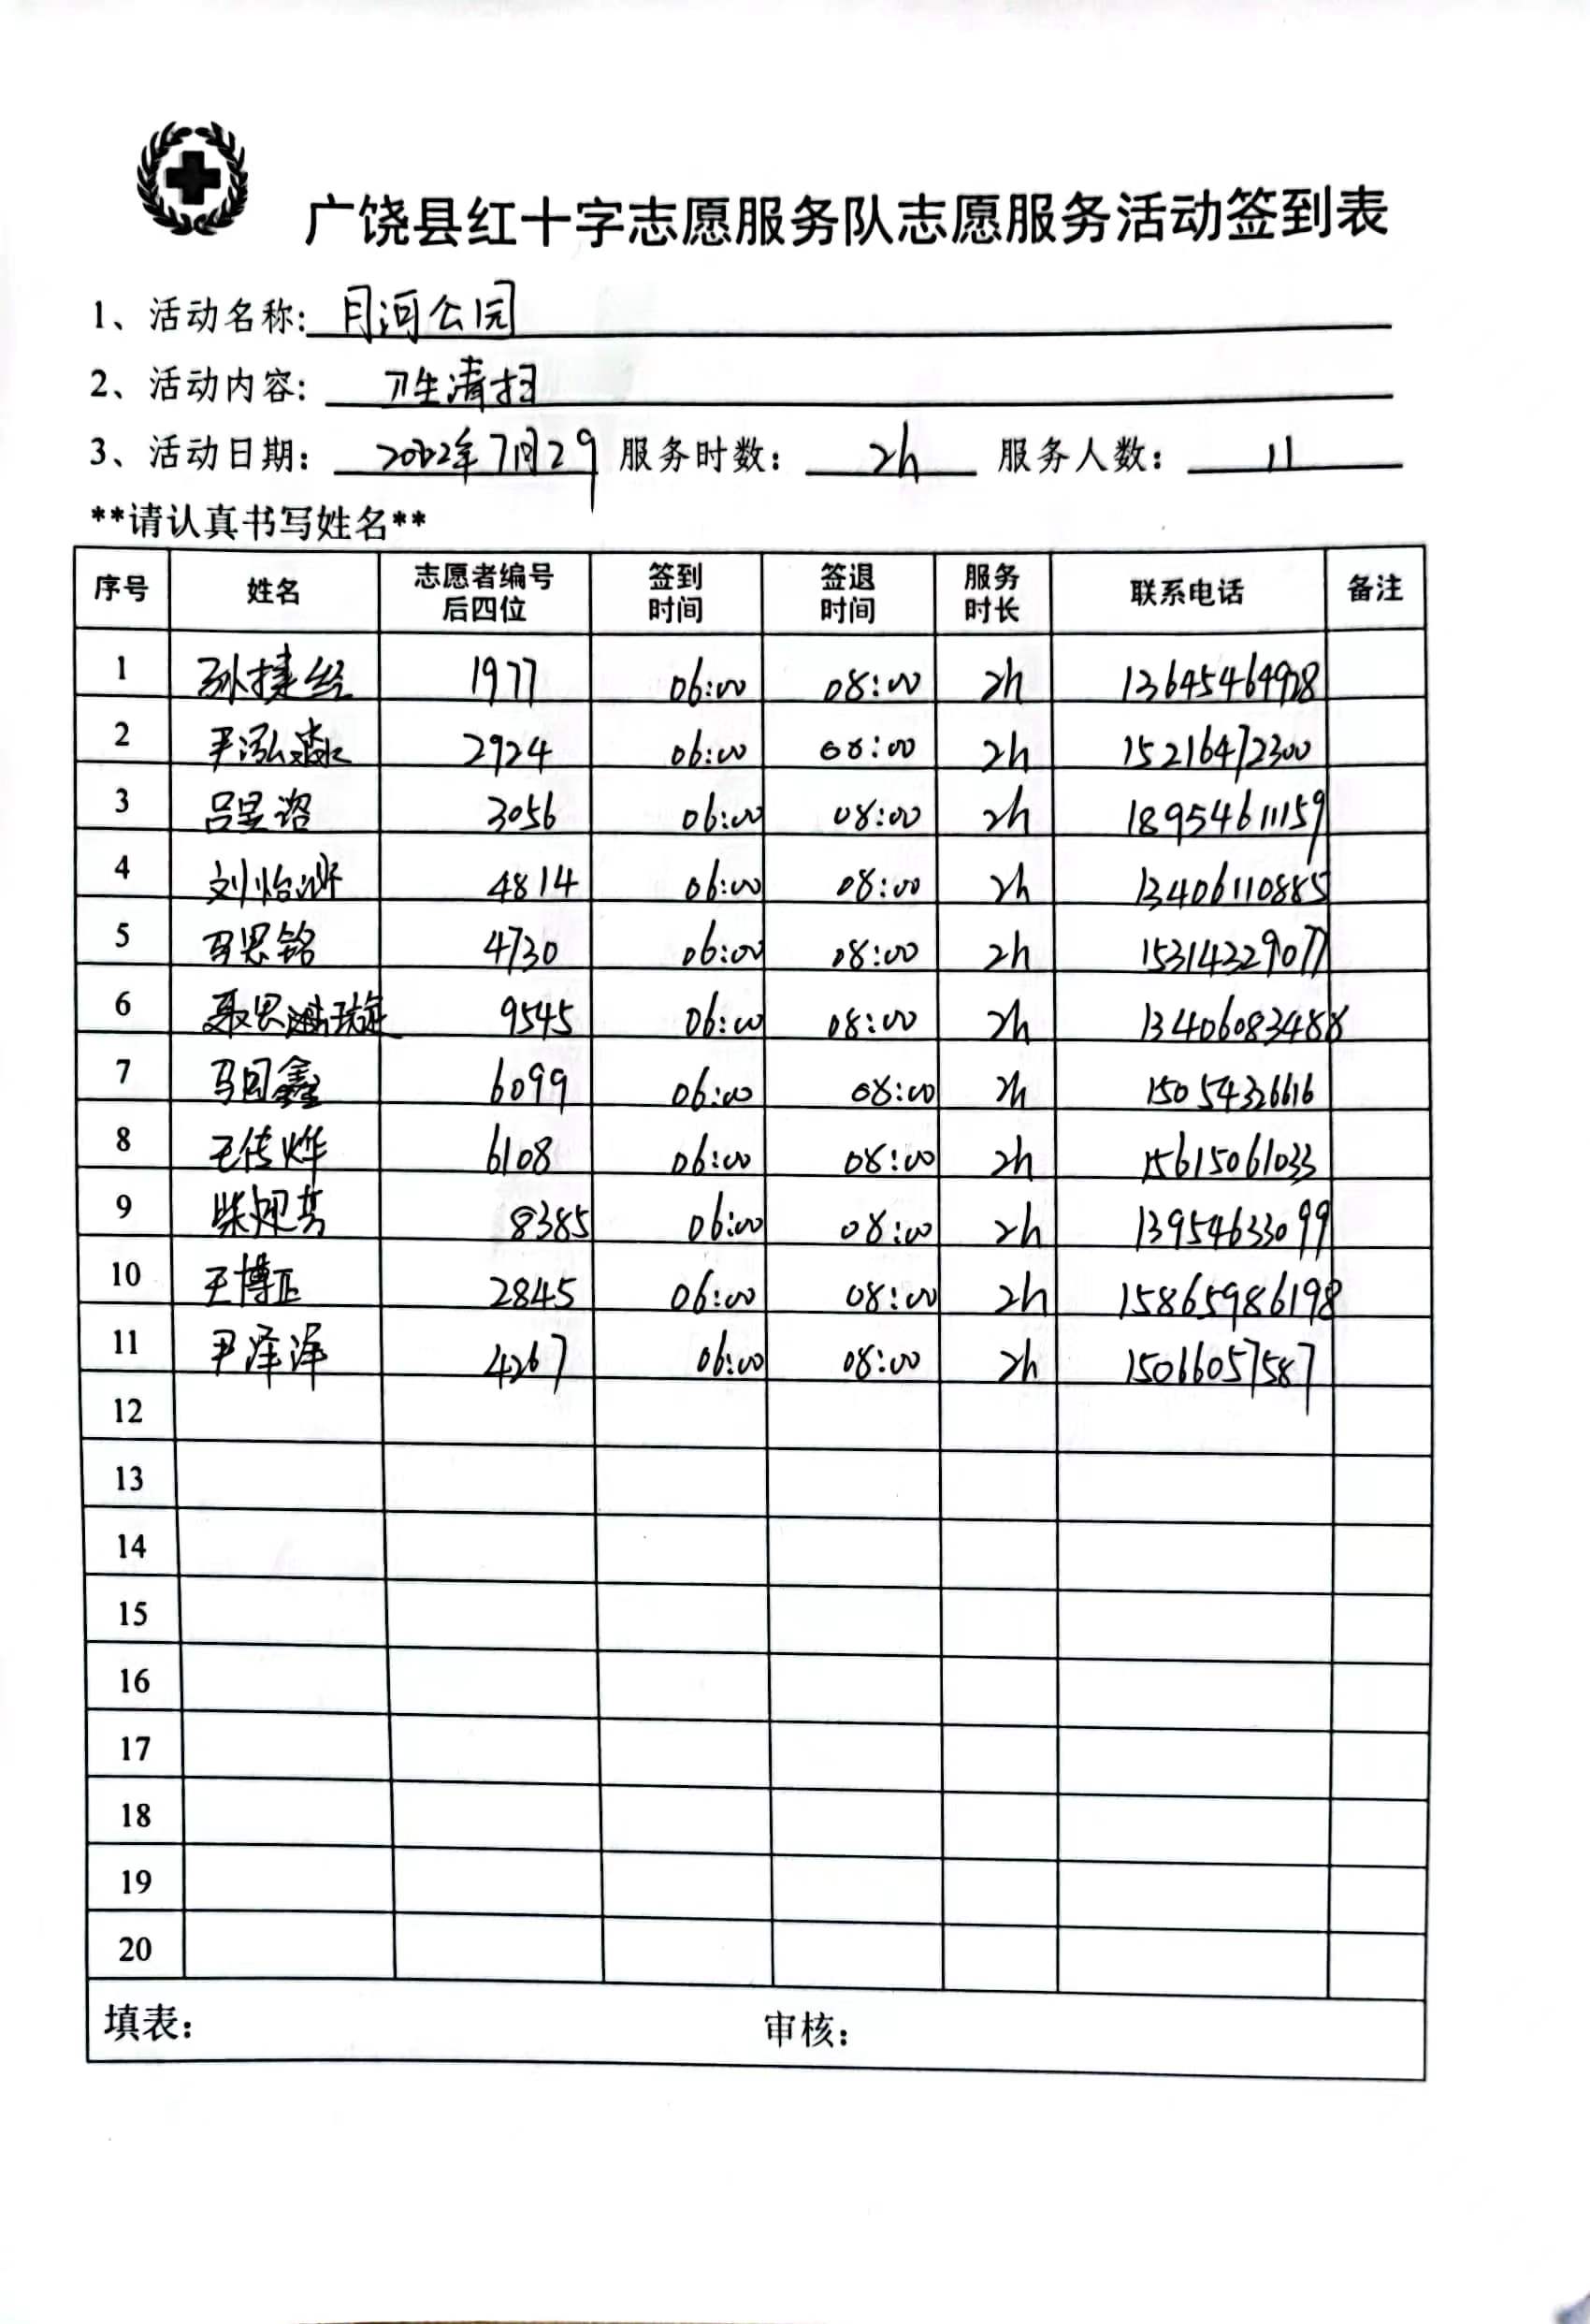 广饶县红十字志愿服务队志愿服务活动签到表
1、活动名称: 月河公园
2、活动内容: 卫生清扫
3、活动日期: 2022年7月29 服务时数: 2h 服务人数: 11
**请认真书写姓名**
序号 姓名 志愿者编号后四位 签到时间 签退时间 服务时长 联系电话 备注
1 孙捷 1977 06:00 08:00 2h 13645464928
2 尹泓淼 2924 06:00 08:00 2h 15216472300
3 吕昱谘 3056 06:00 08:00 2h 18954611159
4 刘怡 4814 06:00 08:00 2h 13406110885
5 马思铭 4730 06:00 08:00 2h 15314329077
6 聂思璇 9545 06:00 08:00 2h 13406083488
7 马国鑫 6099 06:00 08:00 2h 15054326616
8 王传烨 6108 06:00 08:00 2h 15615061033
9 柴 8385 06:00 08:00 2h 13954633099
10 王博正 2845 06:00 08:00 2h 15865986198
11 尹泽泽 4267 06:00 08:00 2h 15066057587
12
13
14
15
16
17
18
19
20
填表: 审核: